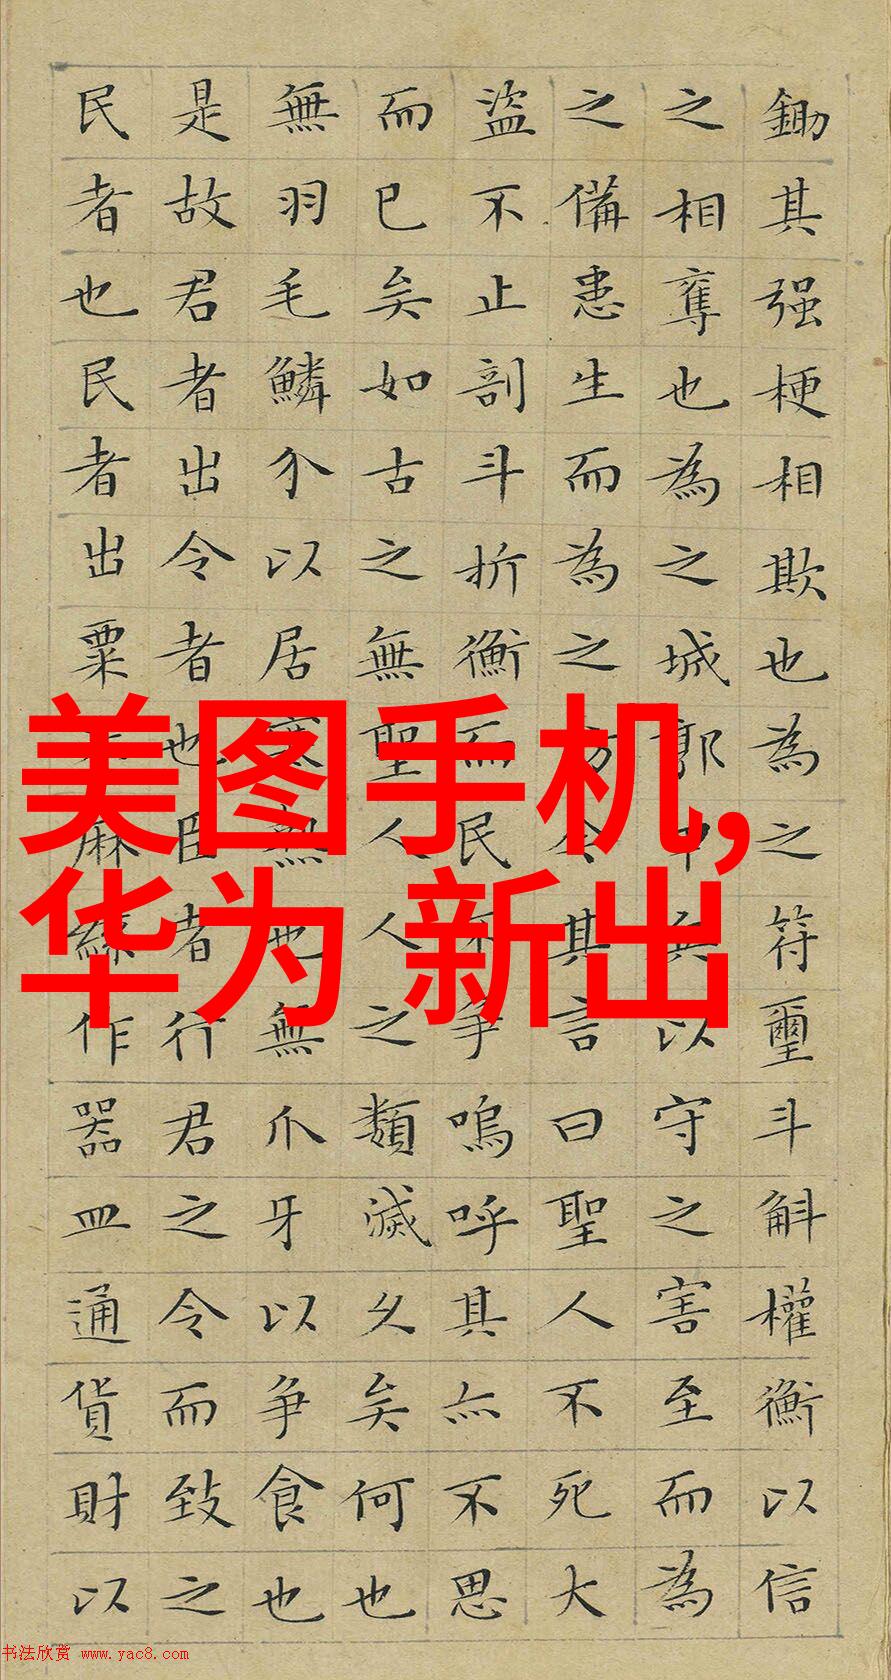 鋤其强梗相欺也為之符璽斗斛權衡以信
之相奪也為之城郭甲兵以守之害至而為
之備患生而為之防今其言曰聖人不死大
盜不止剖斗折衡而民不争嗚呼其亦不思
而已矣如古之無聖人人之類滅久矣何也
無羽毛鱗介以居寒熱也無爪牙以争食也
是故君者出令者也臣者行君之令而致之
民者也民者出粟米麻絲作器皿通貨財以
美图手机,
华为 新出
书法欣赏 www.yac8.com